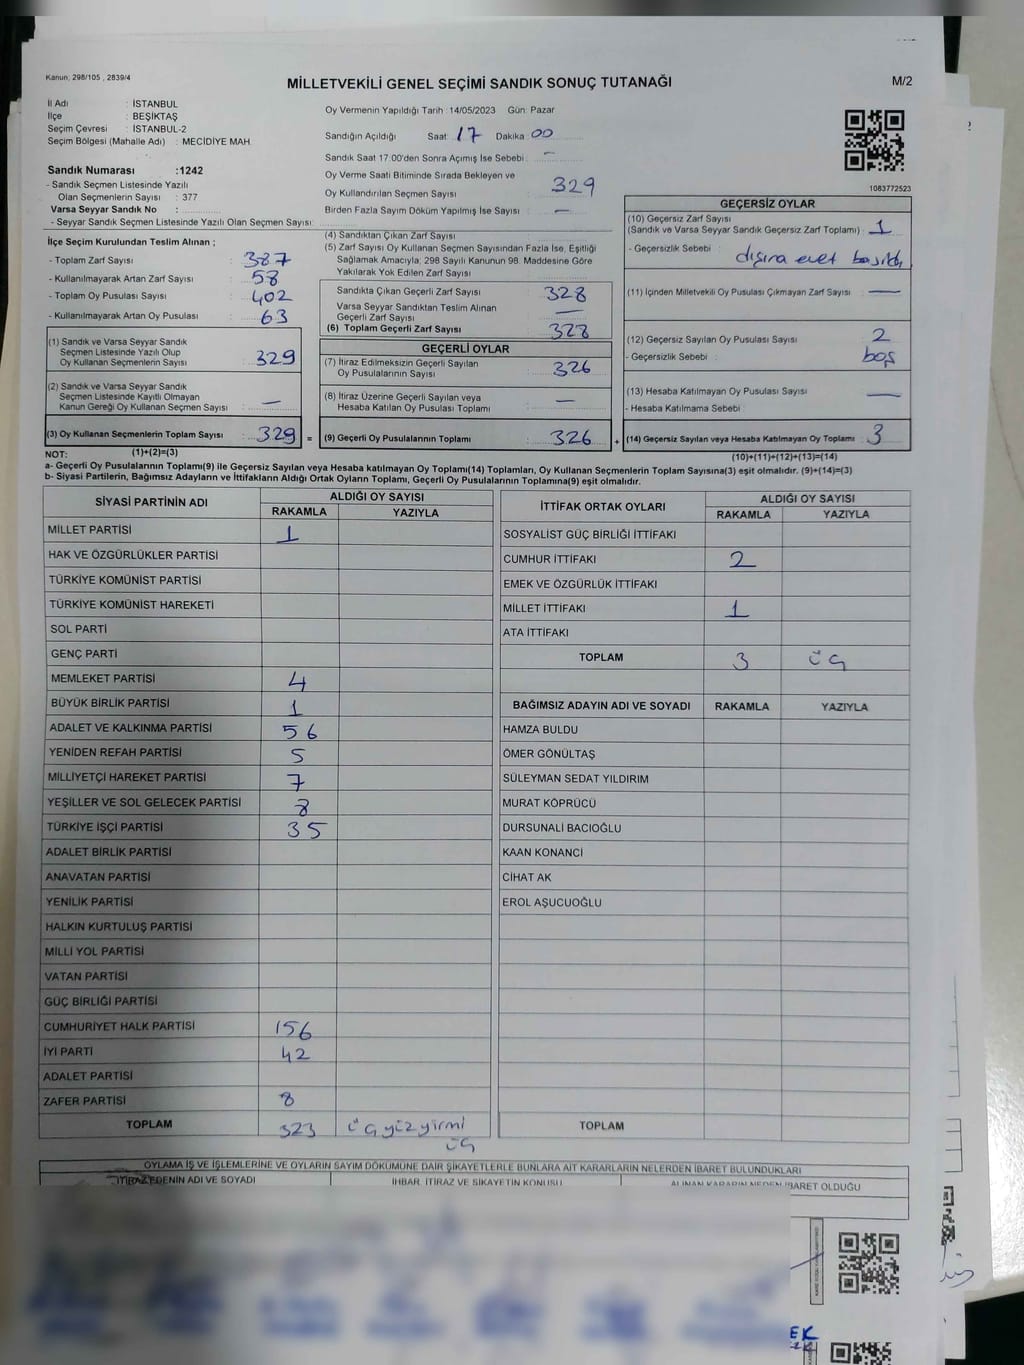 Kanun; 298/105 , 2839/4
MİLLETVEKİLİ GENEL SEÇİMİ SANDIK SONUÇ TUTANAĞI
M/2
İl Adı : İSTANBUL
İlçe : BEŞİKTAŞ
Seçim Çevresi : İSTANBUL-2
Seçim Bölgesi (Mahalle Adı) : MECİDİYE MAH.
Sandık Numarası :1242
- Sandık Seçmen Listesinde Yazılı
Olan Seçmenlerin Sayısı : 377
Varsa Seyyar Sandık No :
- Seyyar Sandık Seçmen Listesinde Yazılı Olan Seçmen Sayısı:
Oy Vermenin Yapıldığı Tarih : 14/05/2023 Gün: Pazar
Sandığın Açıldığı Saat: 17 Dakika: 00
Sandık Saat 17:00'den Sonra Açımış İse Sebebi : -
Oy Verme Saati Bitiminde Sırada Bekleyen ve
Oy Kullandırılan Seçmen Sayısı 329
Birden Fazla Sayım Döküm Yapılmış İse Sayısı : -
1083772523
İlçe Seçim Kurulundan Teslim Alınan ;
- Toplam Zarf Sayısı : 387
- Kullanılmayarak Artan Zarf Sayısı : 58
- Toplam Oy Pusulası Sayısı : 402
- Kullanılmayarak Artan Oy Pusulası : 63
(1) Sandık ve Varsa Seyyar Sandık
Seçmen Listesinde Yazılı Olup
Oy Kullanan Seçmenlerin Sayısı : 329
(2) Sandık ve Varsa Seyyar Sandık
Seçmen Listesinde Kayıtlı Olmayan
Kanun Gereği Oy Kullanan Seçmen Sayısı : -
(3) Oy Kullanan Seçmenlerin Toplam Sayısı : 329 =
(1)+(2)=(3)
(4) Sandıktan Çıkan Zarf Sayısı
(5) Zarf Sayısı Oy Kullanan Seçmen Sayısından Fazla İse, Eşitliği
Sağlamak Amacıyla; 298 Sayılı Kanunun 98. Maddesine Göre
Yakılarak Yok Edilen Zarf Sayısı :
Sandıkta Çıkan Geçerli Zarf Sayısı : 328
Varsa Seyyar Sandıktan Teslim Alınan
Geçerli Zarf Sayısı : -
(6) Toplam Geçerli Zarf Sayısı : 328
GEÇERLİ OYLAR
(7) İtiraz Edilmeksizin Geçerli Sayılan
Oy Pusulalarının Sayısı : 326
(8) İtiraz Üzerine Geçerli Sayılan veya
Hesaba Katılan Oy Pusulası Toplamı : -
(9) Geçerli Oy Pusulalarının Toplamı : 326 +
GEÇERSİZ OYLAR
(10) Geçersiz Zarf Sayısı
(Sandık ve Varsa Seyyar Sandık Geçersiz Zarf Toplamı) : 1
- Geçersizlik Sebebi : dışına evet basıldı
(11) İçinden Milletvekili Oy Pusulası Çıkmayan Zarf Sayısı : -
(12) Geçersiz Sayılan Oy Pusulası Sayısı : 2
- Geçersizlik Sebebi : boş
(13) Hesaba Katılmayan Oy Pusulası Sayısı : -
- Hesaba Katılmama Sebebi :
(14) Geçersiz Sayılan veya Hesaba Katılmayan Oy Toplamı : 3
(10)+(11)+(12)+(13)=(14)
NOT:
a- Geçerli Oy Pusulalarının Toplamı(9) ile Geçersiz Sayılan veya Hesaba katılmayan Oy Toplamı(14) Toplamları, Oy Kullanan Seçmenlerin Toplam Sayısına(3) eşit olmalıdır. (9)+(14)=(3)
b- Siyasi Partilerin, Bağımsız Adayların ve İttifakların Aldığı Ortak Oyların Toplamı, Geçerli Oy Pusulalarının Toplamına(9) eşit olmalıdır.
SİYASİ PARTİNİN ADI ALDIĞI OY SAYISI
RAKAMLA YAZIYLA
MİLLET PARTİSİ 1
HAK VE ÖZGÜRLÜKLER PARTİSİ
TÜRKİYE KOMÜNİST PARTİSİ
TÜRKİYE KOMÜNİST HAREKETİ
SOL PARTİ
GENÇ PARTİ
MEMLEKET PARTİSİ 4
BÜYÜK BİRLİK PARTİSİ 1
ADALET VE KALKINMA PARTİSİ 56
YENİDEN REFAH PARTİSİ 5
MİLLİYETÇİ HAREKET PARTİSİ 7
YEŞİLLER VE SOL GELECEK PARTİSİ 8
TÜRKİYE İŞÇİ PARTİSİ 35
ADALET BİRLİK PARTİSİ
ANAVATAN PARTİSİ
YENİLİK PARTİSİ
HALKIN KURTULUŞ PARTİSİ
MİLLİ YOL PARTİSİ
VATAN PARTİSİ
GÜÇ BİRLİĞİ PARTİSİ
CUMHURİYET HALK PARTİSİ 156
İYİ PARTİ 42
ADALET PARTİSİ
ZAFER PARTİSİ 8
TOPLAM 323 üçyüzyirmi
üç
İTTİFAK ORTAK OYLARI ALDIĞI OY SAYISI
RAKAMLA YAZIYLA
SOSYALİST GÜÇ BİRLİĞİ İTTİFAKI
CUMHUR İTTİFAKI 2
EMEK VE ÖZGÜRLÜK İTTİFAKI
MİLLET İTTİFAKI 1
ATA İTTİFAKI
TOPLAM 3 üç
BAĞIMSIZ ADAYIN ADI VE SOYADI RAKAMLA YAZIYLA
HAMZA BULDU
ÖMER GÖNÜLTAŞ
SÜLEYMAN SEDAT YILDIRIM
MURAT KÖPRÜCÜ
DURSUNALİ BACIOĞLU
KAAN KONANCİ
CİHAT AK
EROL AŞUCUOĞLU
TOPLAM
OYLAMA İŞ VE İŞLEMLERİNE VE OYLARIN SAYIM DÖKÜMÜNE DAİR ŞİKAYETLERLE BUNLARA AİT KARARLARIN NELERDEN İBARET BULUNDUKLARI
İTİRAZ EDENİN ADI VE SOYADI İHBAR, İTİRAZ VE ŞİKAYETİN KONUSU ALINAN KARARIN NEDEN İBARET OLDUĞU